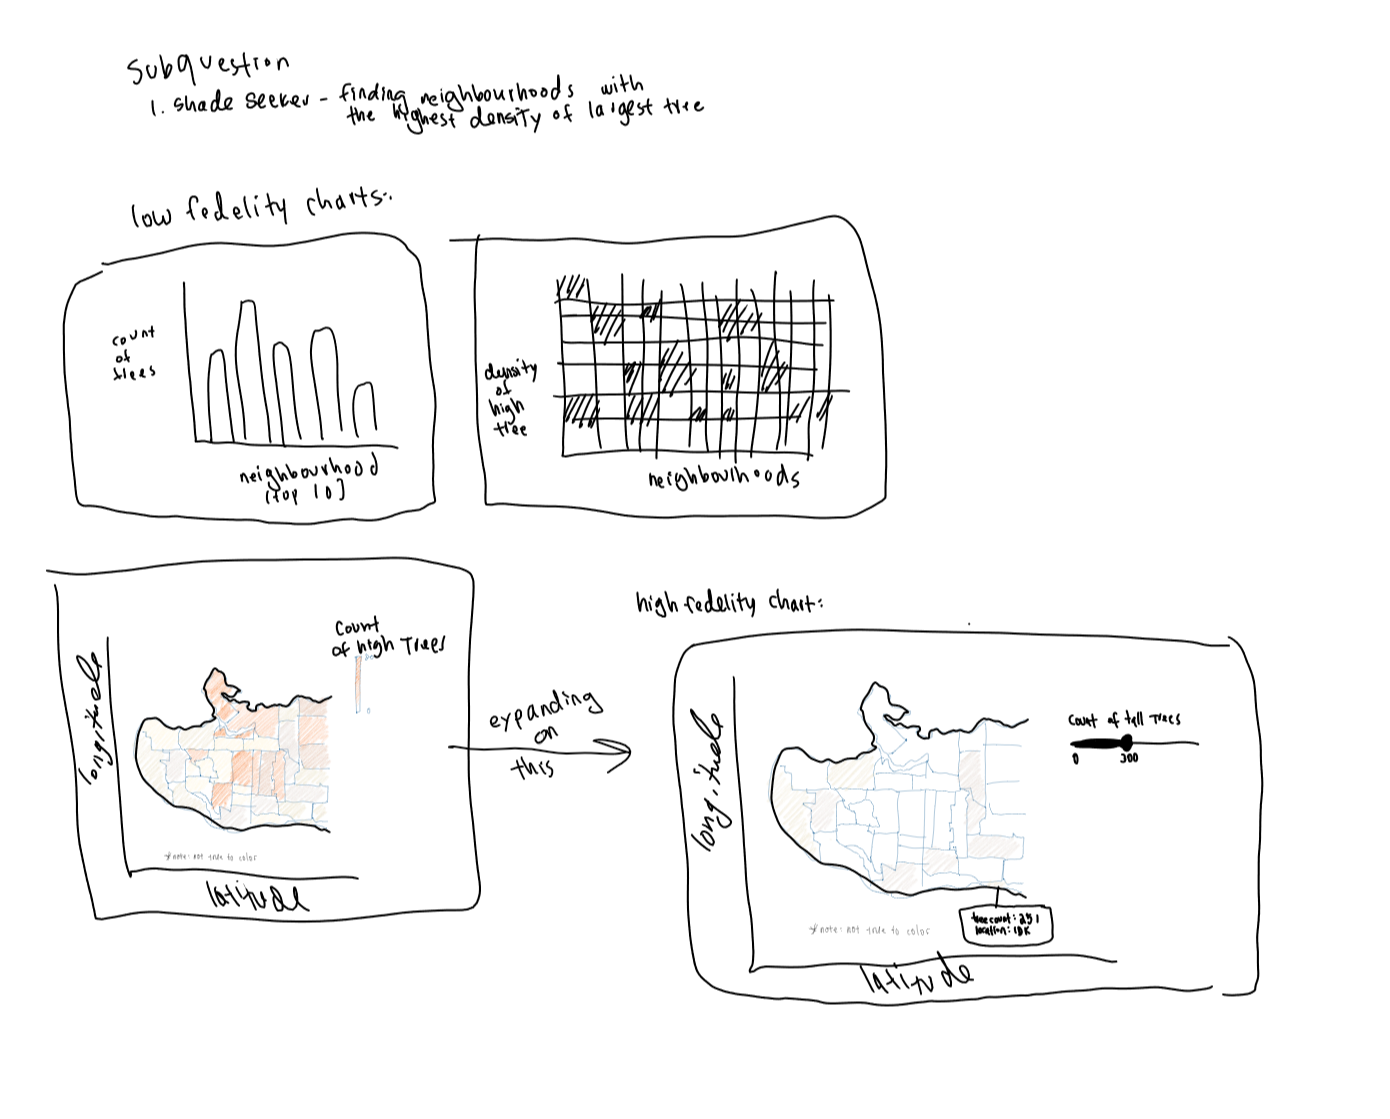 Subquestion
1. shade seeker - finding neighbourhoods with
the highest density of largest tree
low fedelity charts:
count
of
trees
neighbourhood
[top 10]
density
of
high
tree
neighbourhoods
longitude
Count
of high Trees
0
*note: not true to color
latitude
expanding
on
this
high fedelity chart:
longitude
Count of tall Trees
0 300
tree count: 251
location:
*note: not true to color
latitude